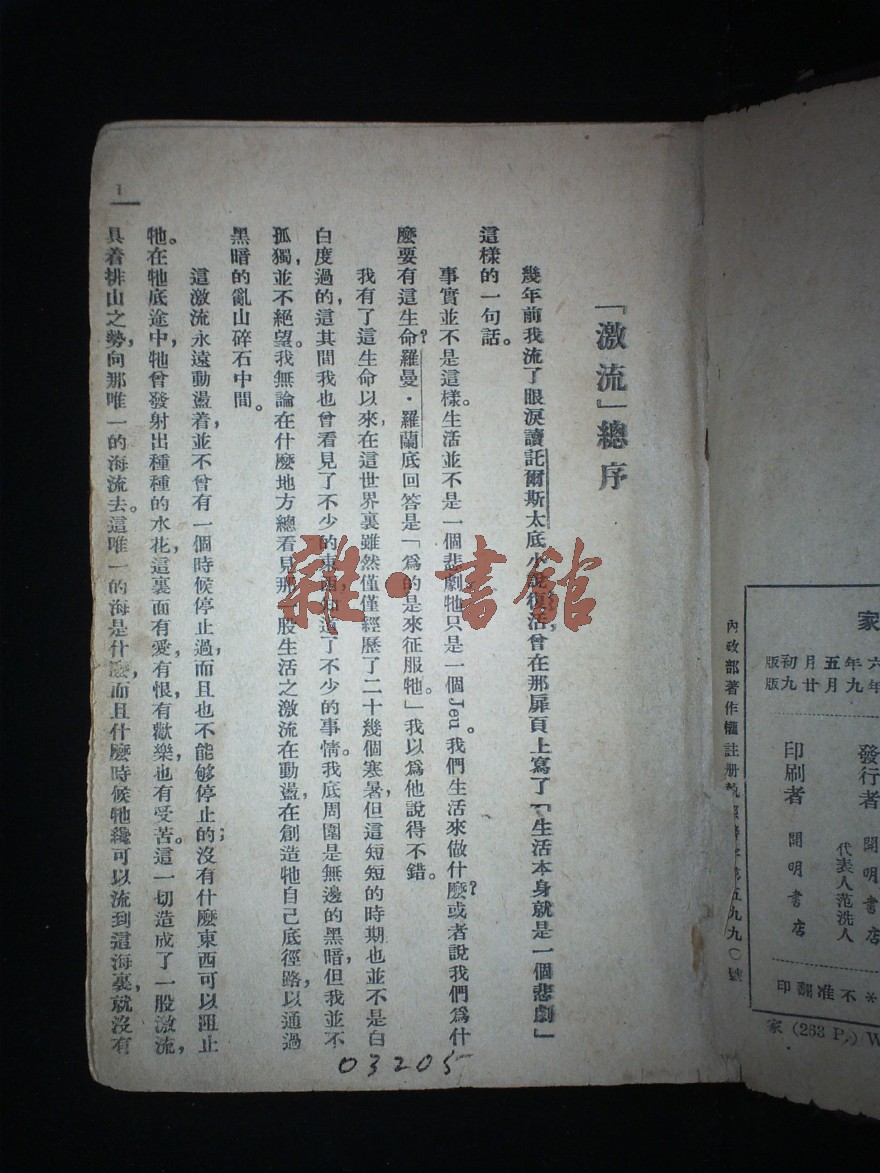 「激流」總序
幾年前我流了眼淚讀託爾斯太底小說復活,曾在那扉頁上寫了「生活本身就是一個悲劇」
這樣的一句話。
事實並不是這樣。生活並不是一個悲劇牠只是一個Jeu。我們生活來做什麼?或者說我們爲什
麼要有這生命?羅曼·羅蘭底回答是「爲的是來征服牠。」我以爲他說得不錯。
我有了這生命以來,在這世界裏雖然僅僅經歷了二十幾個寒暑,但這短短的時期也並不是白
白度過的,這其間我也曾看見了不少的東西,知道了不少的事情。我底周圍是無邊的黑暗,但我並不
孤獨,並不絕望。我無論在什麼地方總看見那一股生活之激流在動盪,在創造牠自己底徑路,以通過
黑暗的亂山碎石中間。
這激流永遠動盪着,並不曾有一個時候停止過,而且也不能够停止的;沒有什麼東西可以阻止
牠。在牠底途中,牠曾發射出種種的水花,這裏面有愛,有恨,有歡樂,也有受苦。這一切造成了一股激流,
具着排山之勢,向那唯一的海流去。這唯一的海是什麼,而且什麼時候牠纔可以流到這海裏,就沒有
1
03205
雜·書館
內政部著作權註册執照警字第五九九〇號
家
六年五月初版
年九月廿九版
發行者 開明書店
代表人范洗人
印刷者 開明書店
*不准翻印
家(263 P.)W